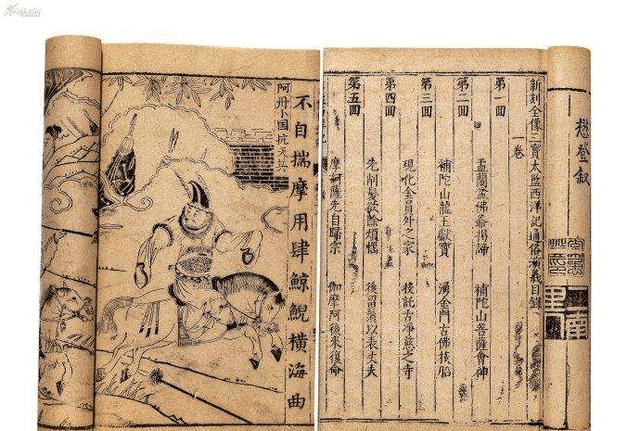 懋登叙
新刻全像三寶太監西洋記通俗演義目錄
一卷
第一囘 盂蘭盆佛爺揭諦 補陀山菩薩會神
第二囘 補陀山龍王獻寶 湧金門古佛投胎
第三囘 現化金員外之家 投託古淨慈之寺
第四囘 先削髮欲除煩惱 後留鬚以表丈夫
第五囘 摩訶薩先自歸宗 迦摩阿後來復命
不自揣摩用肆鯨鯢橫海曲
阿丹小国抗天兵